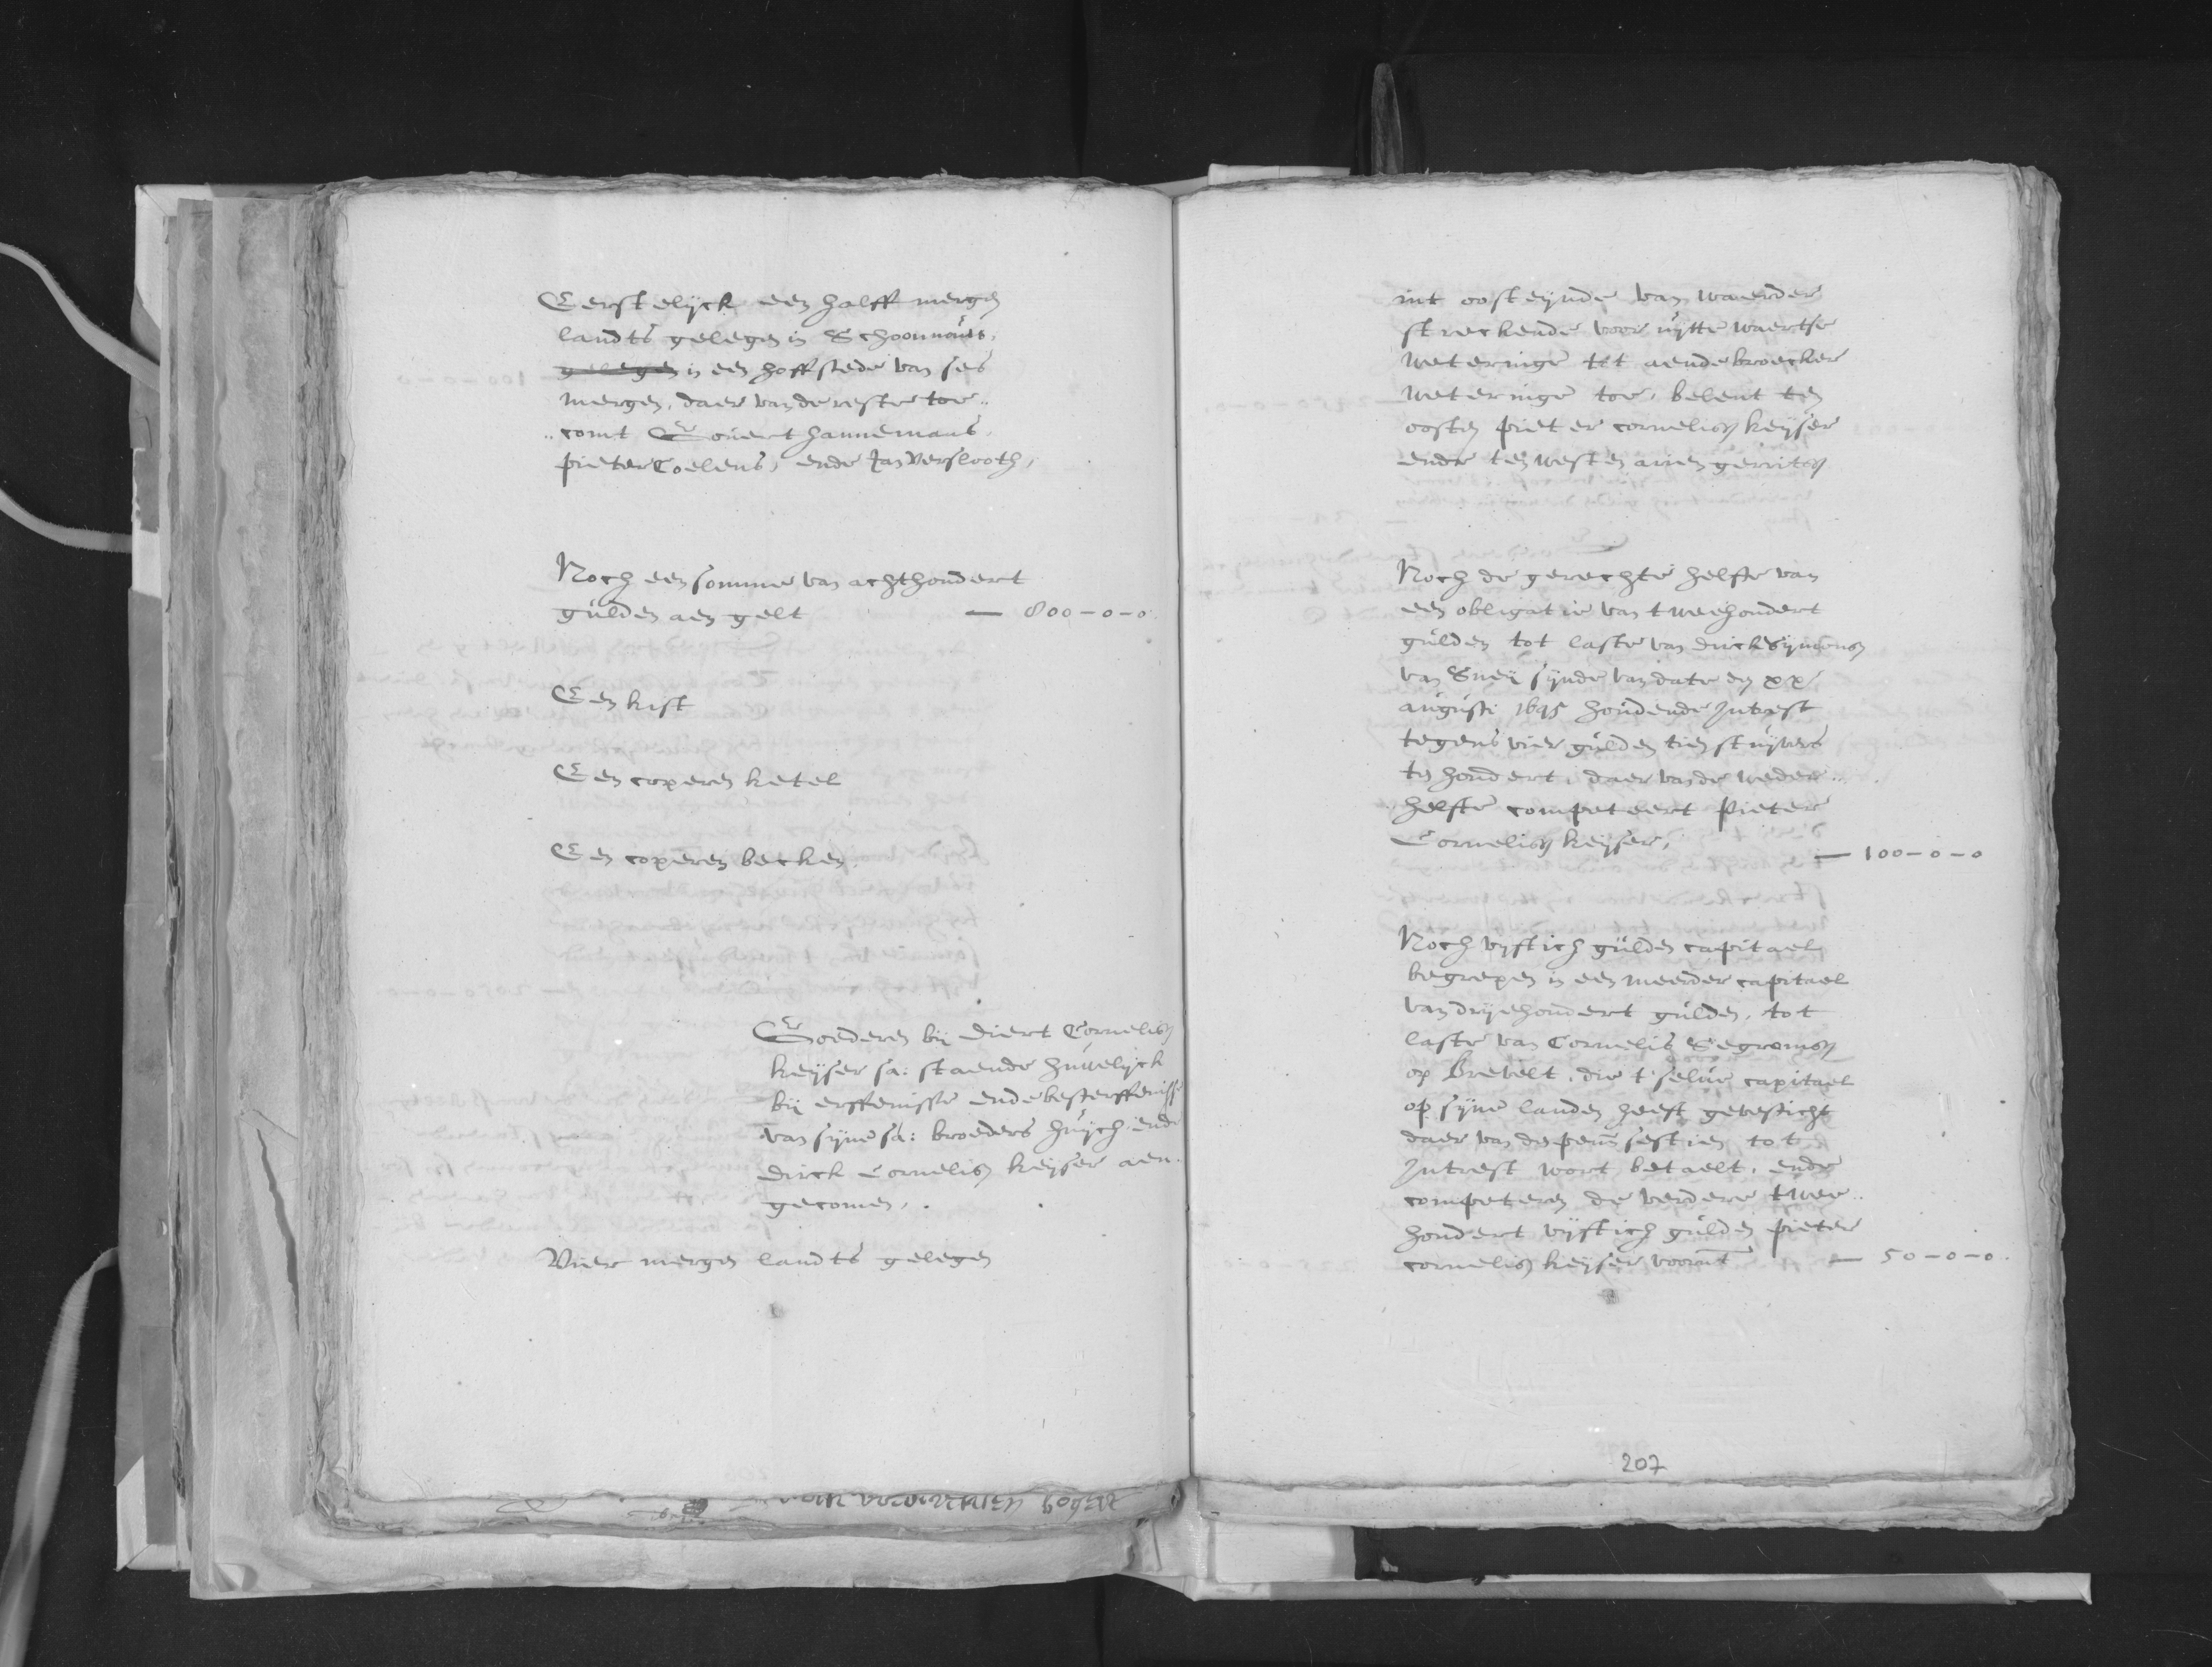 Eerstelijck een halff mergen
landts gelegen in Schoonouts,
gelegen in een hoffstede van ses
mergen, daer van de reste toe..
..comt Govert hannemans,
pieter Coelens, ende Jan Verslooth,
Noch een somme van achthondert
gulden aen gelt — 800-0-0.
Een kist
Een coperen ketel
Een coperen becken.
Goederen bij diert Cornelisz
keijser sa: staende huwelijck
bij erffenisse ende besterffenisse
van sijne sa: broeders huijch ende
dirck Cornelisz keijser aen.
gecomen.
Vier mergen landts gelegen
int oosteijnde van waerder
streckende voor uijtte waertse
weteringe tot aende broecker
weteringe toe, belent ten
oosten pieter cornelisz keijser
ende ten westen arien gerritsz
Noch de gerechte helfte van
een obligatie van tweehondert
gulden tot laste van dirck Sijmonsz
van Sneij sijnde van date den xx
augusti 1645 houdende Intrest
tegens vier gulden tien stuijvers
ten hondert, daer van de weder..
helfte competeert Pieter
Cornelisz keijser, — 100-0-0
Noch vijftich gulden capitael
begrepen in een meerder capitael
van drijehondert gulden, tot
laste van Cornelis Segremsz
op Brevelt, die t'selve capitael
op sijne landen heeft gevesticht
daer van de penn sestien tot
Intrest wort betaelt, ende
competeren de verdere twee..
hondert vijftich gulden pieter
cornelisz keijser voornt — 50-0-0.
207